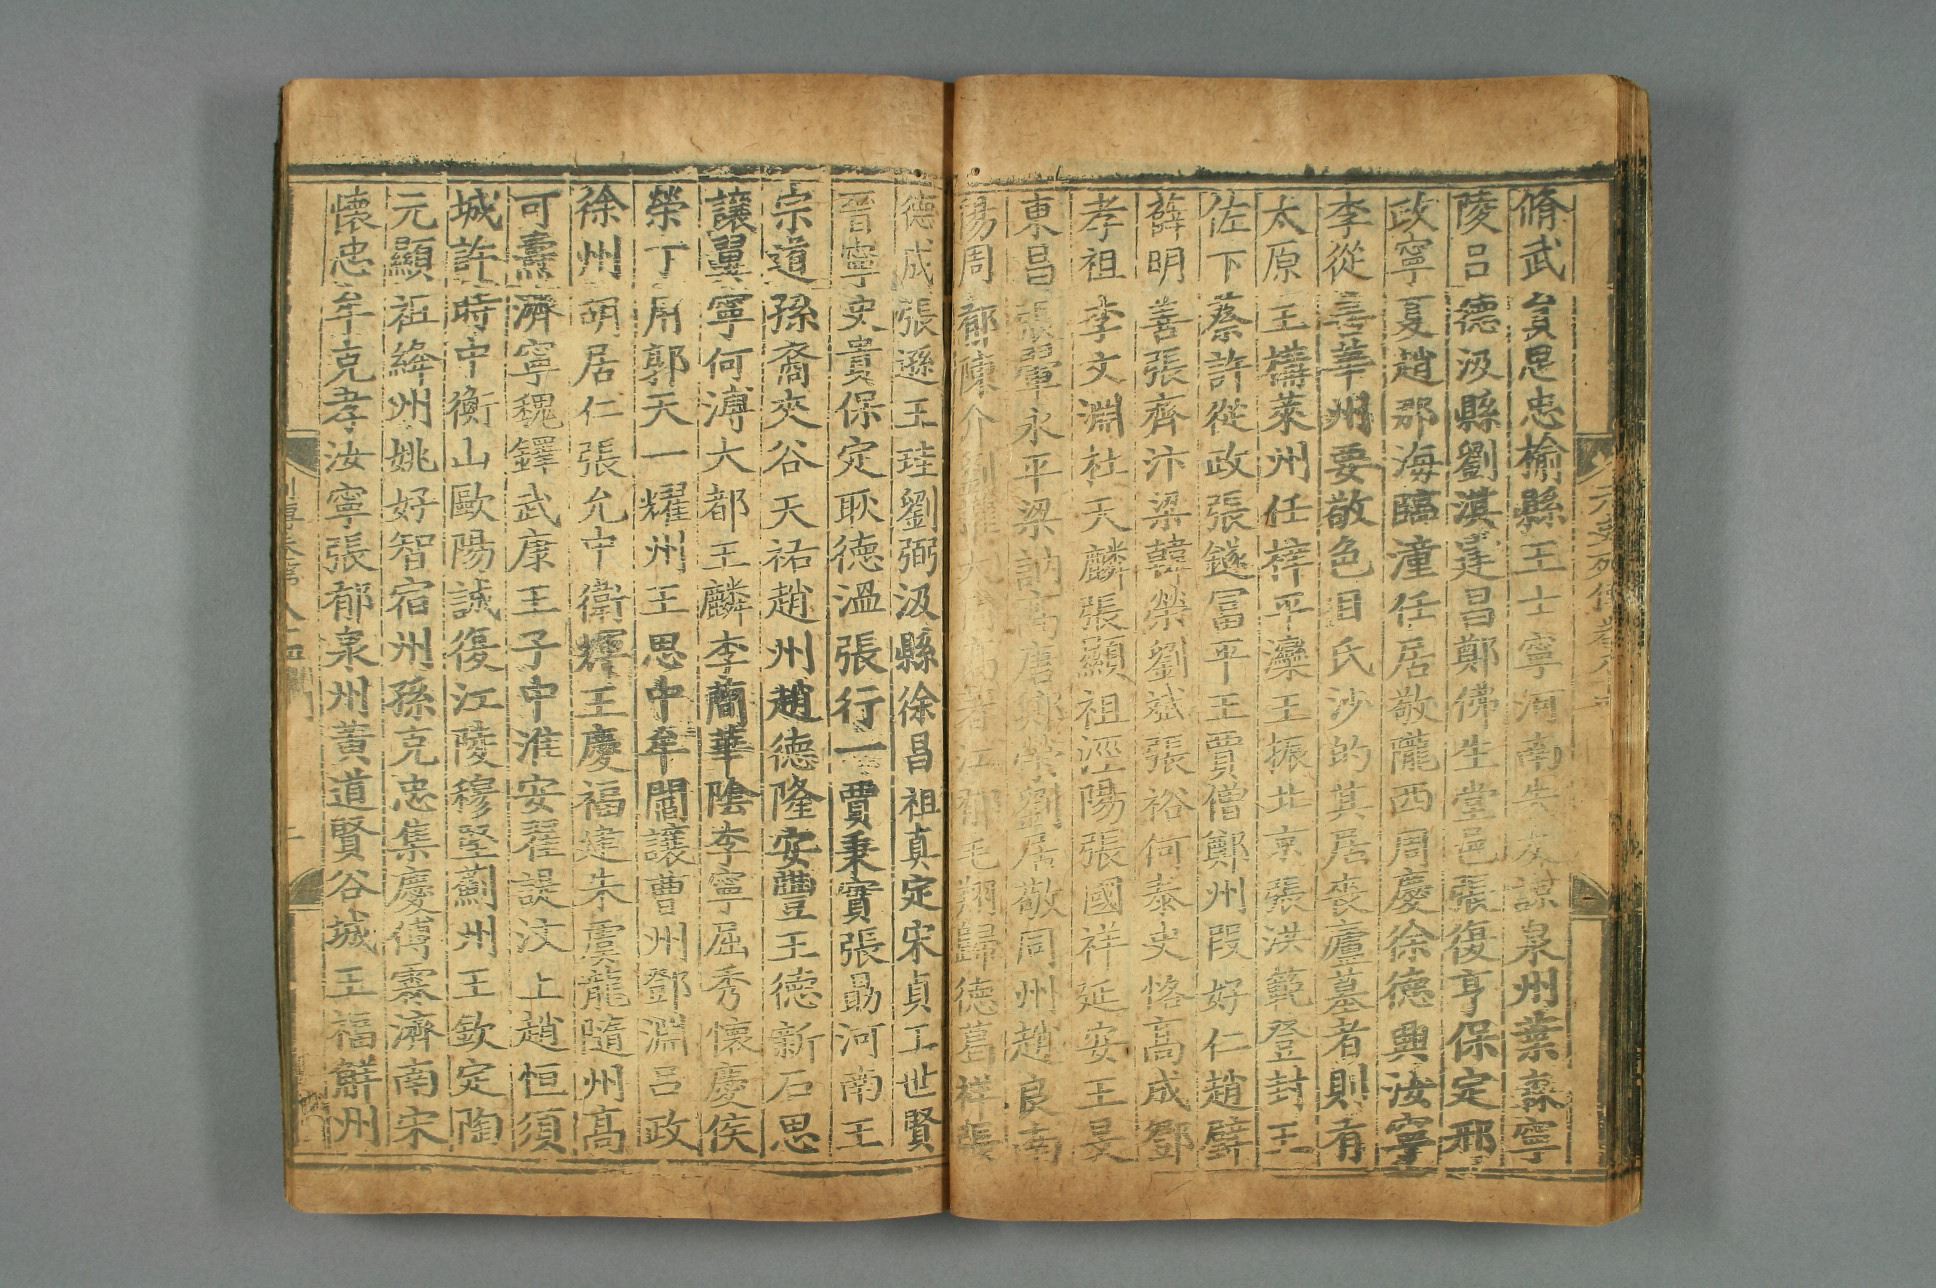 脩武員思忠榆縣王士寧河南朱友諒泉州葉森寧
陵呂德汲縣劉淇建昌鄭佛生堂邑張復亨保定邢
政寧夏趙那海臨潼任居敬隴西周慶徐德興汝寧
李從善華州要敬色目氏沙的其居喪廬墓者則有
太原王構萊州任梓平灤王振北京張洪範登封王
佐下蔡許從政張鐩冨平王賈僧鄭州段好仁趙璧
薛明善張齊汴梁韓榮劉斌張裕何泰史恪高成鄧
孝祖李文淵杜天麟張顯祖涇陽張國祥延安王旻
東昌張翬永平梁訥高唐鄭榮劉居敬同州趙良南
陽周郁陳介江郁毛翔歸德葛祥張
德成張遜王珪劉弼汲縣徐昌祖真定宋貞工世賢
晉寧史貴保定耿德溫張行一賈秉實張勗河南王
宗道孫裔夾谷天祐趙州趙德隆安豐王德新石思
讓翼寧何溥大都王麟李蘭華陰李寧屈秀懷慶侯
榮丁用郭天一耀州王思中牟閻讓曹州鄧淵呂政
徐州胡居仁張允中衛輝王慶福建朱虞龍隨州高
可燾濟寧魏鐸武康王子中淮安翟諟汶上趙恒須
城許時中衡山歐陽誠復江陵穆堅薊州王欽定陶
元顯祖絳州姚好智宿州孫克忠集慶傅霖濟南宋
懷忠牟克孝汝寧張郁泉州黃道賢谷城王福解州